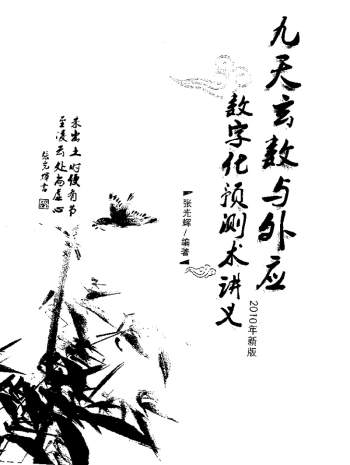 九天玄数与外应
数字化预测术讲义
2010年新版
张光辉/编著
未出土时便有节
至凌云处尚虚心
张光辉书